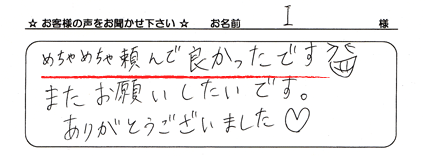 ☆ お客様の声をお聞かせ下さい ☆ お名前 I 様
めちゃめちゃ頼んで良かったです
またお願いしたいです。
ありがとうございました♡